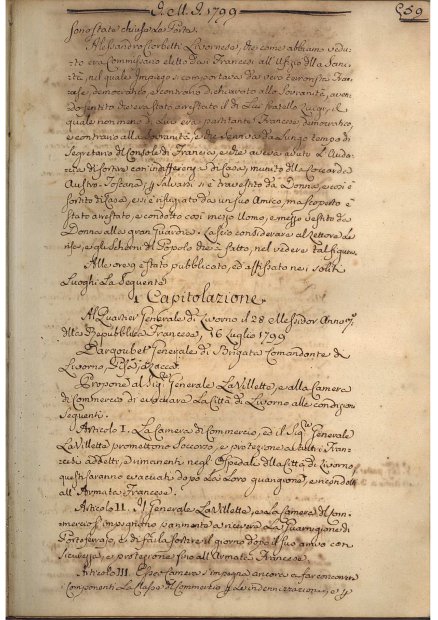 G. M. G. 1799
259
sono state chiuse le Porte.
Alessandro Ciorbetti Livornese, che come abbiamo vedu-
to era Commissario eletto dai Francesi all'Ufizio della Sani-
tà, nel quale Impiego si comportava da vero terrorista Fran-
cese, democratico, e contrario dichiarato alla Sovranità, aven-
do sentito che era stato arrestato il di Lui fratello Luigi, il
quale non meno di Lui era partitante Francese, democratico,
e contrario alla Sovranità, e che Senne da Lungo tempo di
Segretario del Console di Francia, e che aveva avuto L'Auda-
cia di sortire con indifferenza di Casa, munito della Coccarda
Austro-Toscana, p salvarsi si è travestito da Donna, e così è
sortito di Casa, e si è rifugiato da un suo Amico, ma scoperto è
stato arrestato, e condotto così mezzo Uomo, e mezzo vestito da
Donna alla gran Guardia. Lascio considerare al Lettore Le
rise, e gli scherni del Popolo che à fatto, nel vedere tal figura.
Alle ore 9 è stato pubblicato, ed affissato nei soliti
Luoghi La Seguente
Capitolazione.
Al Quartier Generale di Livorno il 28 Messidor Anno 7.
della Repubblica Francese, 16 Luglio 1799
Dargoubet Generale di Brigata Comandante di
Livorno, Pisa, e Lucca.
Propone al Sig. Generale La Villette, e alla Camera
di Commercio di evacuare La Città di Livorno alle condizioni
seguenti.
Articolo I. La Camera di Commercio, ed il Sig. Generale
La Villetta promettono Soccorso, e protezione ai malati Fran-
cesi addetti, e rimanenti negl'Ospedali della Città di Livorno,
questi saranno evacuati dopo La Loro guarigione, e si condotti
all'Armata Francese.
Articolo II. Il Generale La Villette, e La Camera di Com-
mercio s'impegnano parimente a ricevere La Guarnigione di
Portoferraio, e di farla sortire il giorno dopo il suo arrivo con
sicurezza, e protezione fino all'Armata Francese.
Articolo III. Essa Camera s'impegna ancora a far concorrere
i Componenti La Massa di Commercio p Le indennizzazioni, p